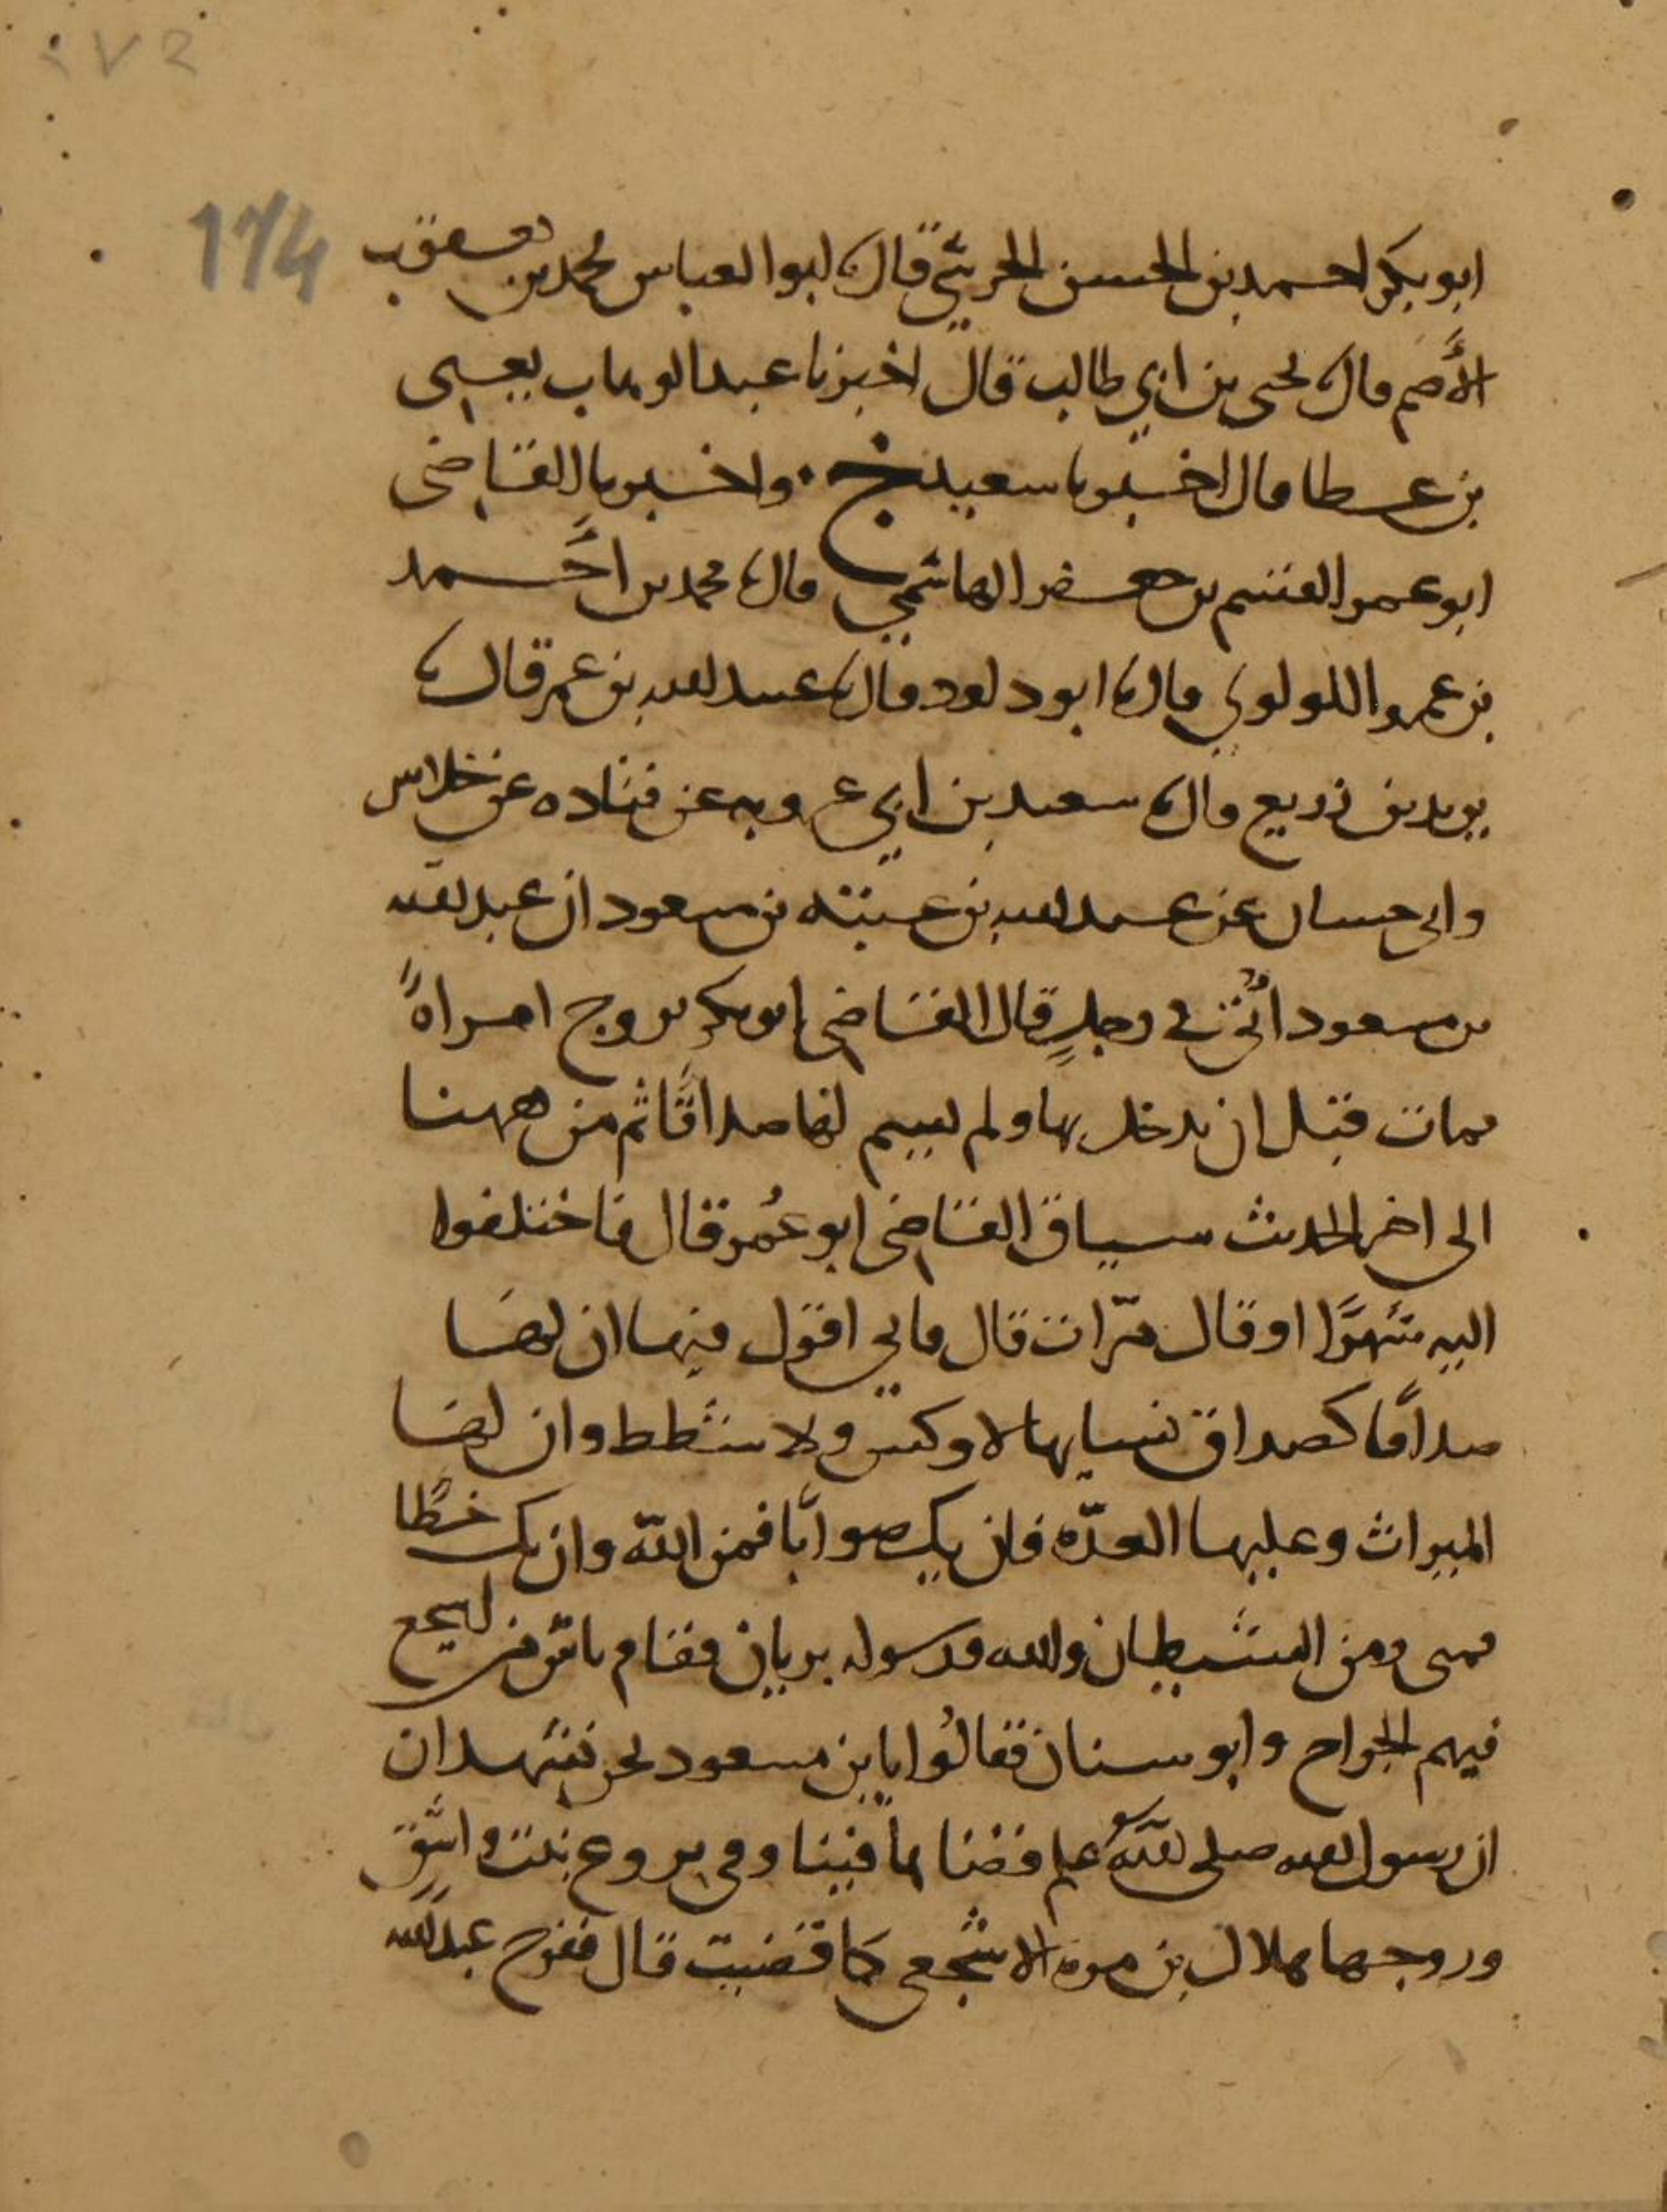 ٢٧٢
174
ابو بكر احمد بن الحسن الحرشي قال نا ابو العباس محمد بن يعقوب
الأصم قال نا يحيى بن ابي طالب قال اخبرنا عبد الوهاب يعني
بن عطا قال اخبرنا سعيد ح واخبرنا القاضي
ابو عمر القسم بن جعفر الهاشمي قال نا محمد بن احمد
بن عمرو اللولوي قال نا ابو داود قال نا عبيد الله بن عمر قال نا
يزيد بن زريع قال نا سعيد بن ابي عروبه عن قتاده عن خلاس
وابي حسان عن عبد الله بن عتبه بن مسعود ان عبد الله
بن مسعود أتي في رجلٍ قال القاضي ابو بكر تزوج امراةً
فمات قبل ان يدخل بها ولم يسم لها صداقًا ثم من ههنا
الى اخر الحديث سياق القاضي ابو عُمر قال فاختلفوا
اليه شهرًا او قال مرّات قال فاني اقول فيها ان لها
صداقًا كصداق نسايها لا وكس ولا شطط وان لها
الميراث وعليها العدّه فان يك صوابًا فمن اللّه وان يك خطًا
فمني ومن الشيطان والله ورسوله بريان فقام ناس من اشجع
فيهم الجراح وابو سنان فقالُوا يا بن مسعود نحن نشهد ان
ان رسول الله صلى الله عليه وسلم قضاها فينا وفي بروع بنت واشق
وزوجها هلال بن مره الاشجعي كما قضيت قال ففرح عبد الله